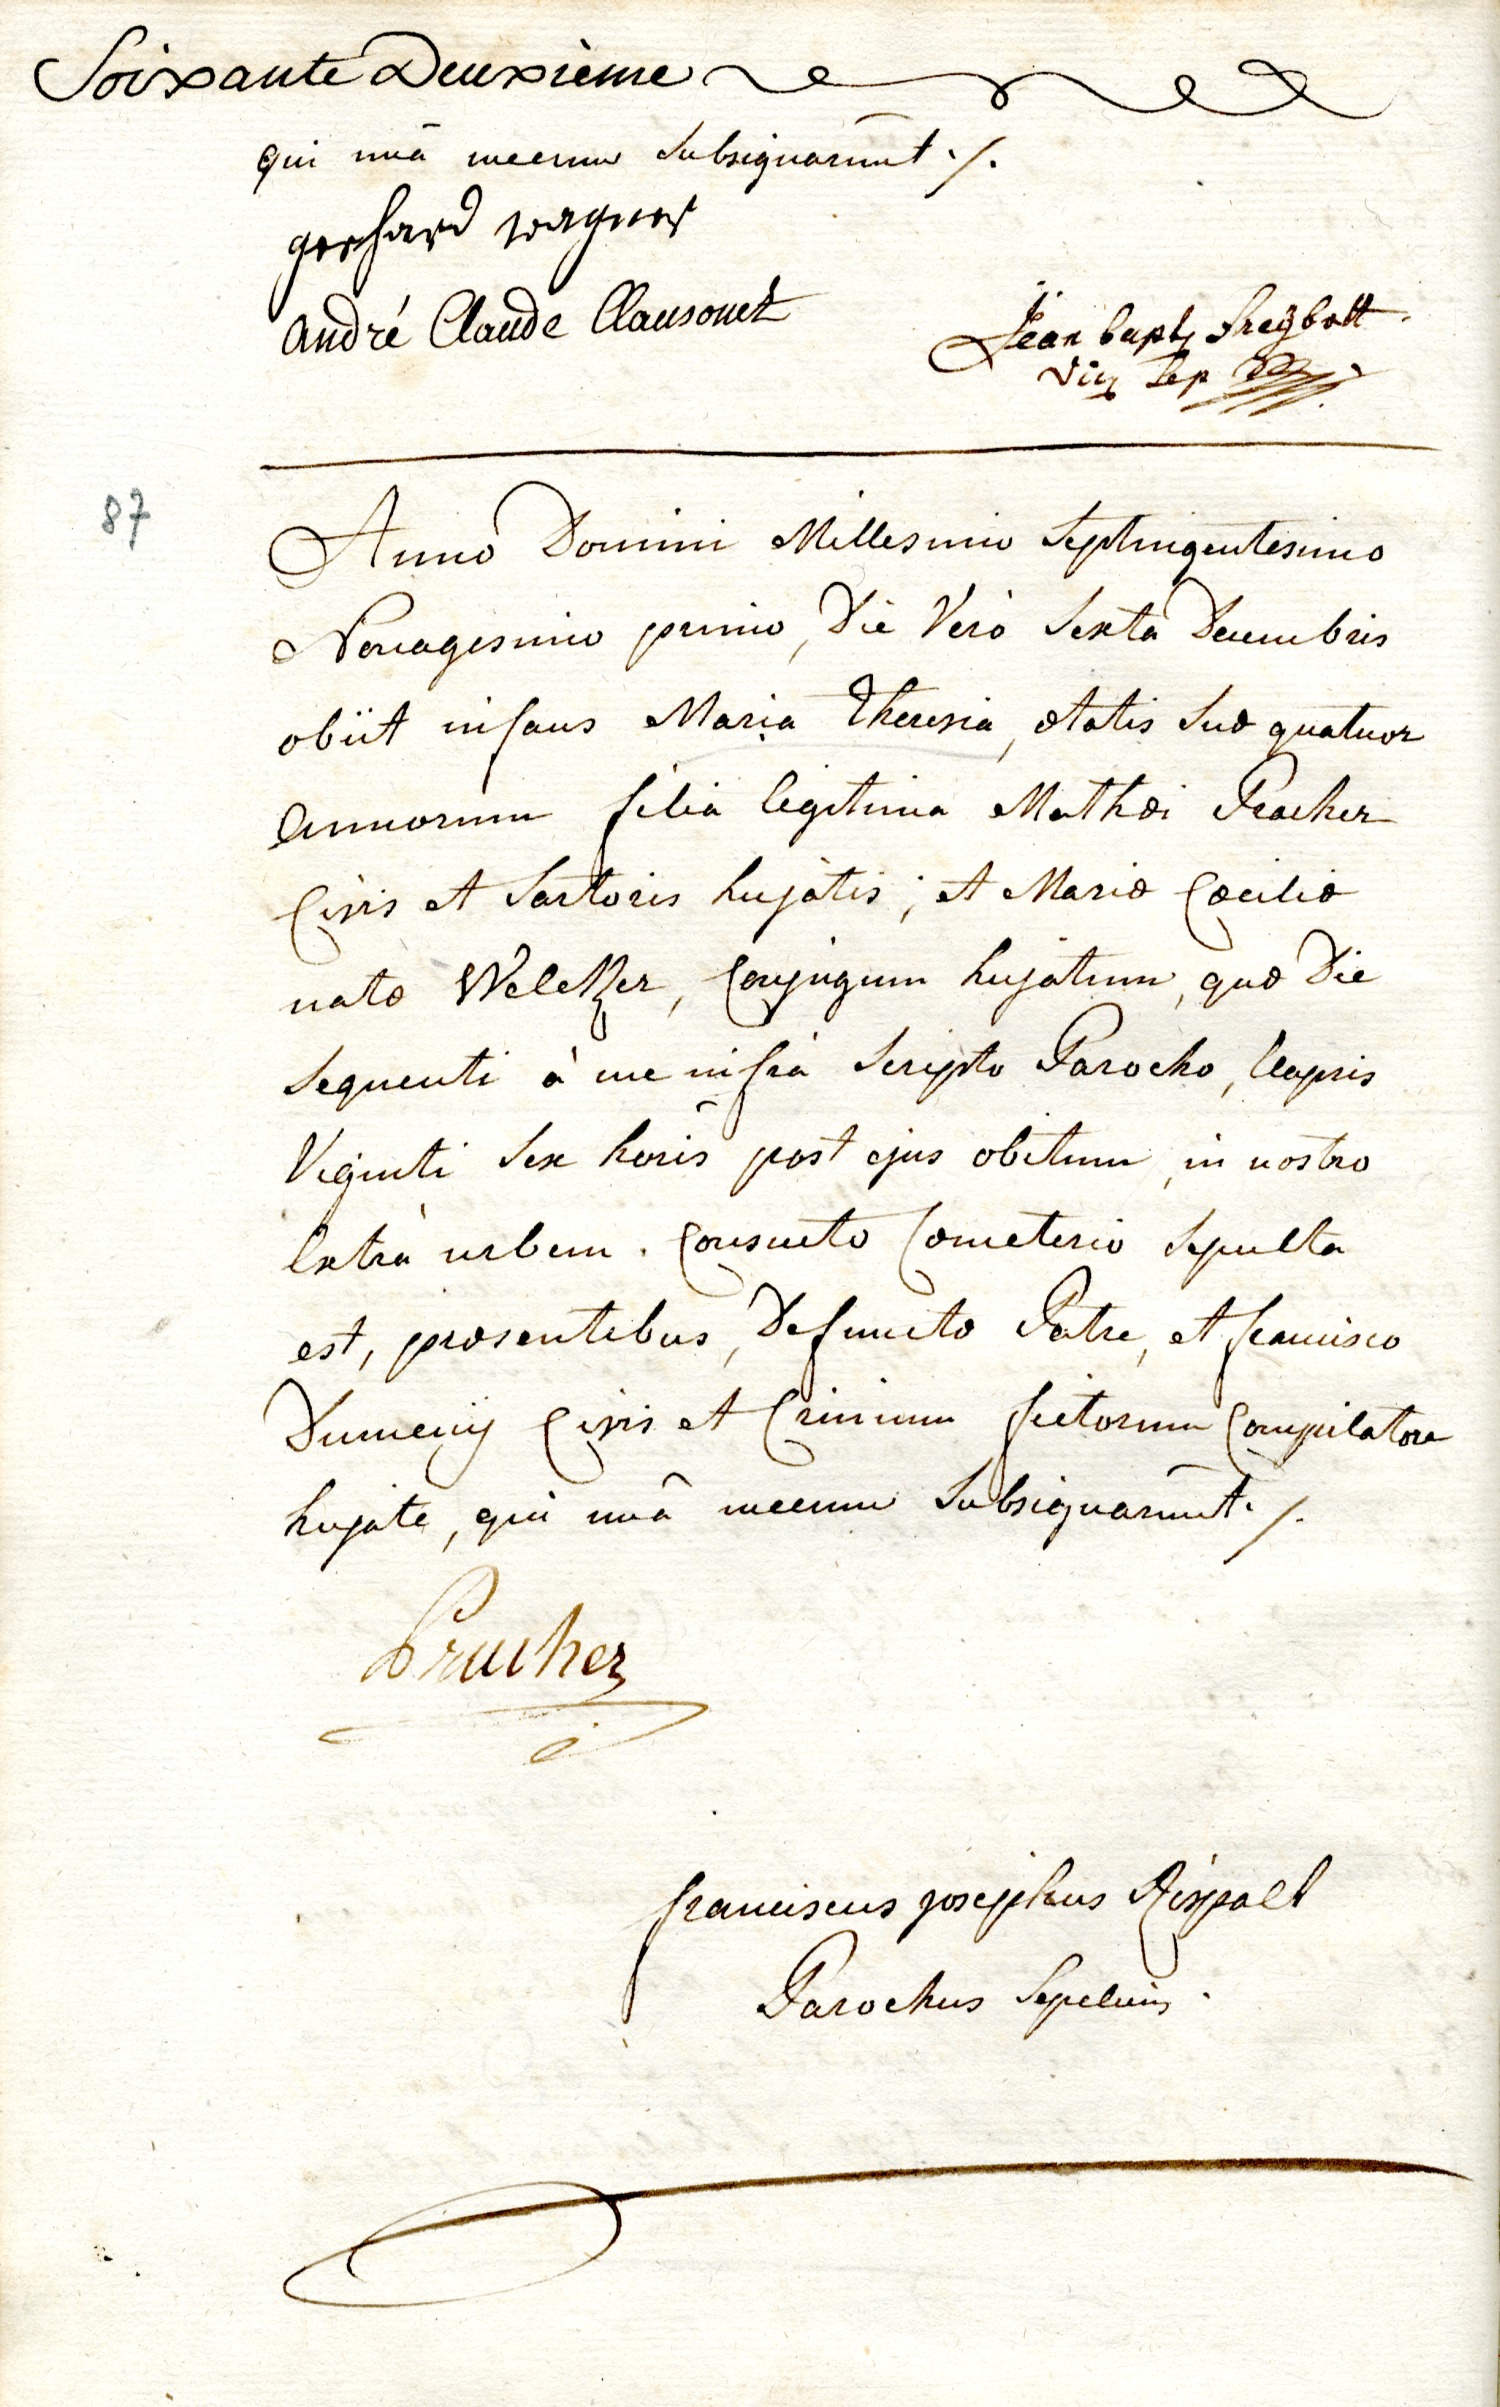 Soixante Deuxième
qui unà mecum subsignarunt ./.
gerhard wagner
andré Claude Clausonet
Jean bapt freÿbott
Vic Sep
87
Anno Domini Millesimo Septingentesimo
Nonagesimo primo, Die Verò Sexta Decembris
obiit infans Maria Theresia, ætatis suæ quatuor
annorum filia legitima Mathæi Pracher
Civis et Sartoris hujatis; et Mariæ Cæciliæ
natæ Weltzer, Conjugum hujatum, quæ Die
sequenti à me infrà scripto Parocho, elapsis
Viginti sex horis post ejus obitum, in nostro
extrà urbem. Consueto Cœmeterio sepulta
est, præsentibus, Defunctæ Patre, et francisco
Dumeny Civis et Crinium fictorum Compilatore
hujate, qui unâ mecum subsignarunt ./.
Prucher
franciscus josephus Rispalt
Parochus Sepeliens.